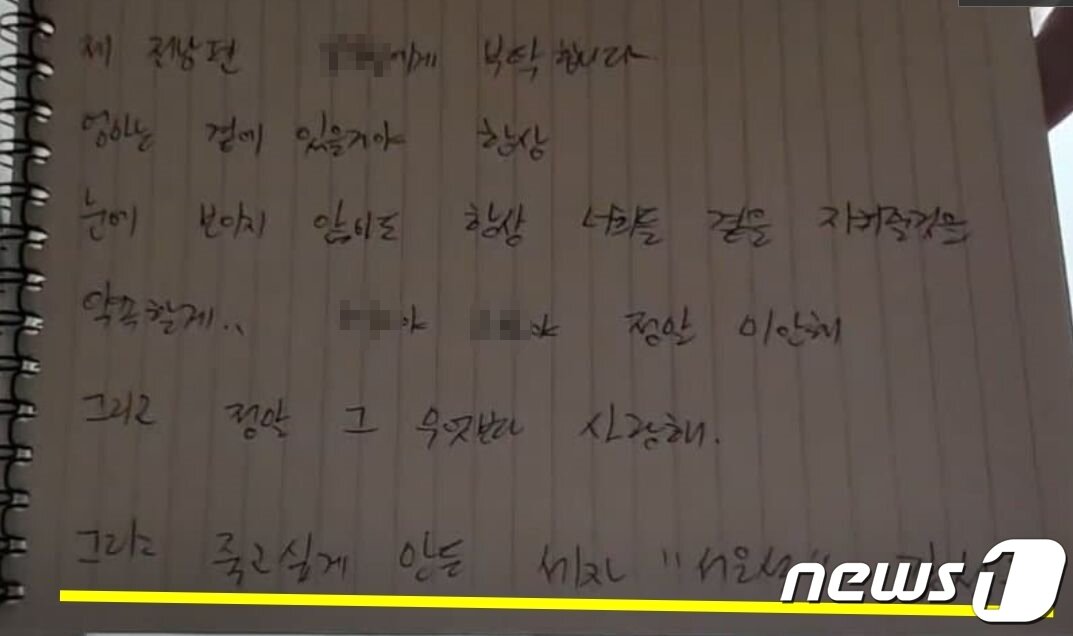 제 전남편 에게 부탁합니다
엄마는 곁에 있을거야 항상
눈에 보이지 않아도 항상 너희들 곁을 지켜줄것을
약속할게.. 야 야 정말 미안해
그리고 정말 그 무엇보다 사랑해.
그리고 죽고싶게 만든
news1